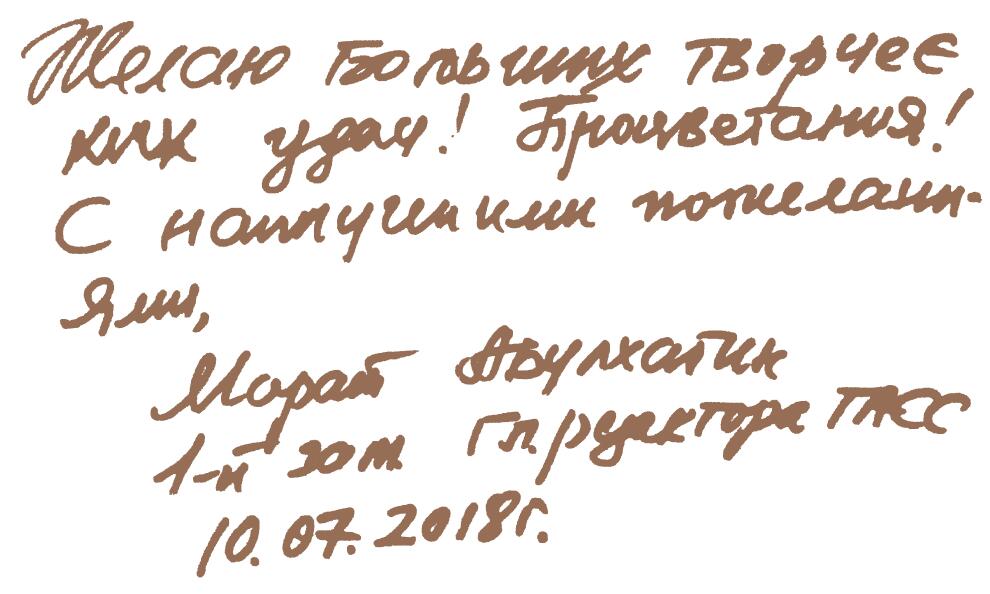 Желаю больших творчес
ких удач! Процветания!
С наилучшими пожелани-
ями,
Марат Абулхатин
1-й зам. Гл. редактора ТАСС
10.07.2018г.